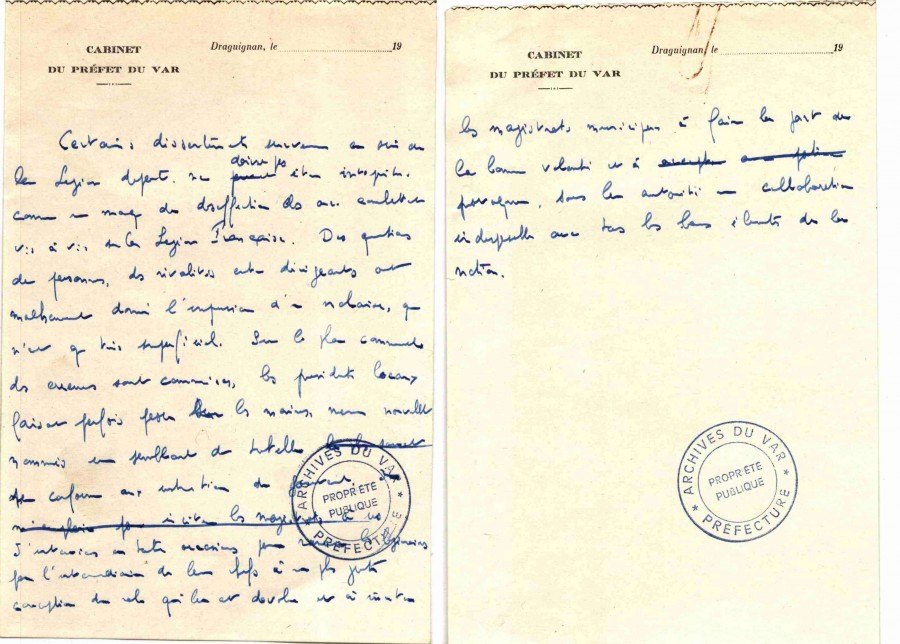 CABINET
DU PRÉFET DU VAR
Draguignan, le 19
Certains dissentiments survenus au sein de
la Légion départ. ne doivent pas être interprétés
comme une marque de désaffection des anc. combattants
vis à vis de la Légion Française. Des questions
de personnes, des rivalités entre dirigeants ont
malheureusement donné l'impression d'un malaise, qui
n'est que très superficiel. Sur le plan communal
des erreurs sont commises, les présidents locaux
faisant parfois peser les maires, même nouvellement
nommés un semblant de tutelle
aux intentions du
J'interviens en toutes occasions pour les légionnaires
par l'intermédiaire de leurs chefs à une plus juste
conception du rôle qui leur est dévolu et à inviter
ARCHIVES DU VAR
PROPRIÉTÉ
PUBLIQUE
* PRÉFECTURE *
CABINET
DU PRÉFET DU VAR
Draguignan, le 19
les magistrats municipaux à faire la part de
la bonne volonté et à
provoquer, sous leur autorité une collaboration
indispensable avec tous les bons éléments de la
nation.
ARCHIVES DU VAR
PROPRIÉTÉ
PUBLIQUE
* PRÉFECTURE *